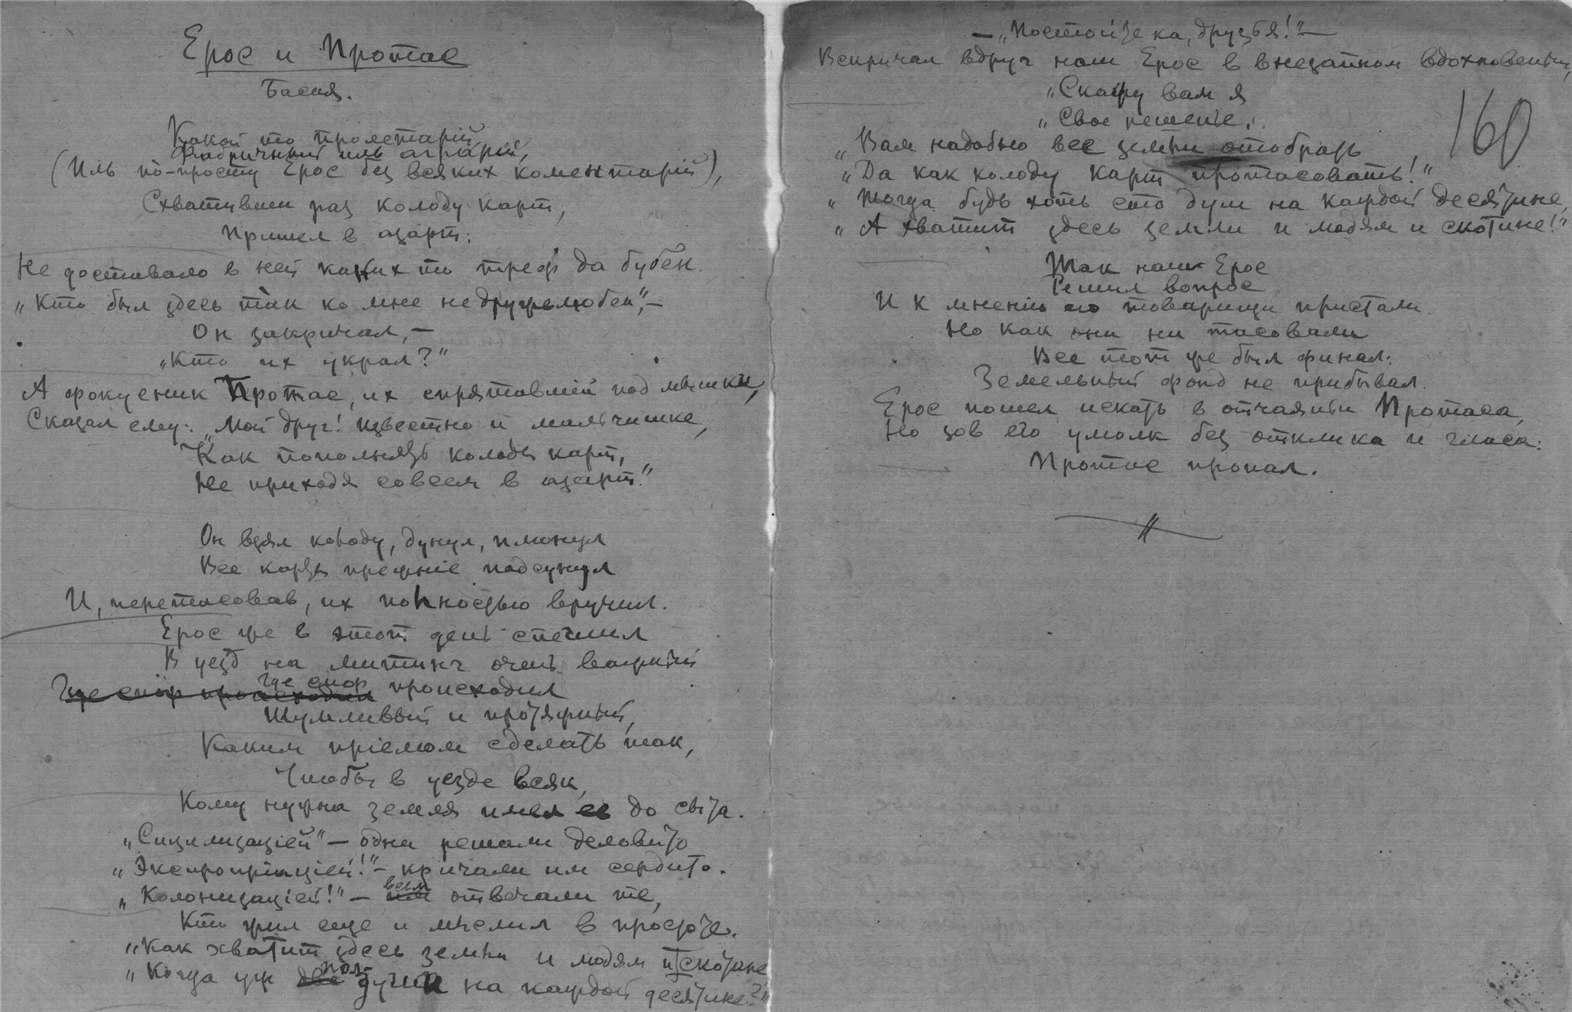 Ерос и Протас
Басня.
Какой то пролетарій
Фабричный иль аграрій,
(Иль по-просту Ерос без всяких коментарій),
Схвативши раз колоду карт,
Пришел в азарт:
Не доставало в ней каких то треф да бубен.
"Кто был здесь так ко мне недружелюбен", —
Он закричал, —
"Кто их украл?"
А фокусник Протас, их спрятавшій под мышки,
Сказал ему: "Мой друг! Известно и мальчишке,
"Как пополнять колоды карт,
Не приходя совсем в азарт."
Он взял колоду, дунул, плюнул
Все карты прежніе подсунул
И, перетасовав, их полностью вручил.
Ерос же в этот день спешил
В уезд на митинг очень важный
Где спор происходил
Где спор происходил
Шумливый и протяжный,
Каким пріемом сделать так,
Чтобы в уезде всяк,
Кому нужна земля имел ее до сыта.
"Сицилизаціей" — одни решали деловито
"Экспропріаціей!" — кричали им сердито.
"Колонизаціей!" — всем отвечали те,
Кто жил еще и мыслил в простоте.
"Как хватит здесь земли и людям и скотине
"Когда уж две пол-души на каждой десятине?"
— "Постойте ка, друзья!" —
Вскричал вдруг наш Ерос в внезапном вдохновеньи,
"Скажу вам я
"Свое решенье.
"Вам надобно все земли отобрать
"Да как колоду карт протасовать!"
"Тогда будь хоть сто душ на каждой десятине,
"А хватит здесь земли и людям и скотине!"
160
Так наш Ерос
Решил вопрос
И к мненію его товарищи пристали.
Но как они ни тасовали
Все тот же был финал:
Земельный фонд не прибывал.
Ерос пошел искать в отчаяньи Протаса,
Но зов его умолк без отклика и гласа:
Протас пропал.